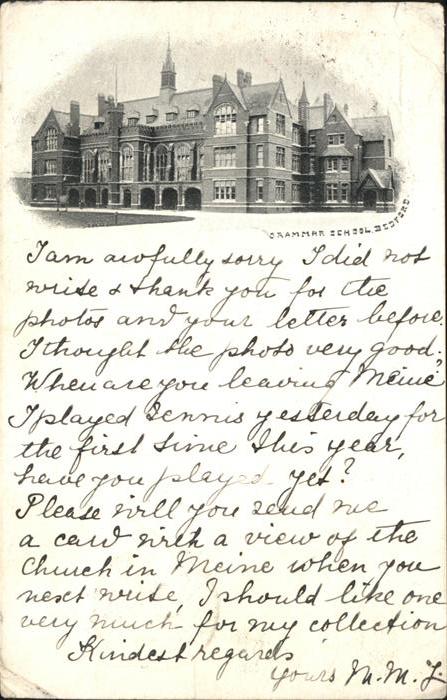 GRAMMAR SCHOOL, BEDFORD.
I am awfully sorry I did not
write & thank you for the
photos and your letter before,
I thought the photo very good.
When are you leaving Meine?
I played Tennis yesterday for
the first time this year,
have you played yet?
Please will you send me
a card with a view of the
Church in Meine when you
next write, I should like one
very much for my collection
Kindest regards
yours M. M. J.